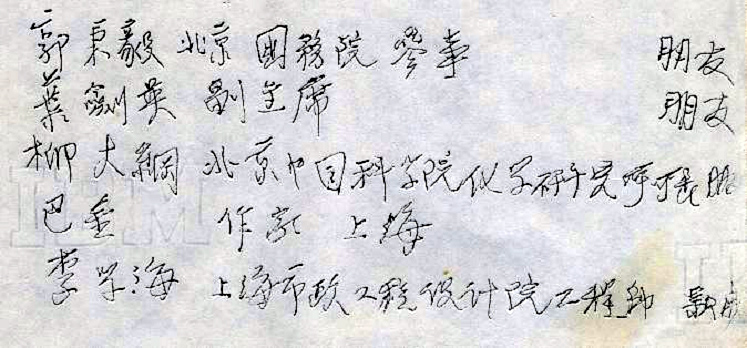 郭秉毅 北京 國務院 參事 朋友
葉劍英 副主席 朋友
柳大綱 北京中国科学院化学研究所所長 朋
巴金 作家 上海
李学海 上海市政工程设计院工程师 親